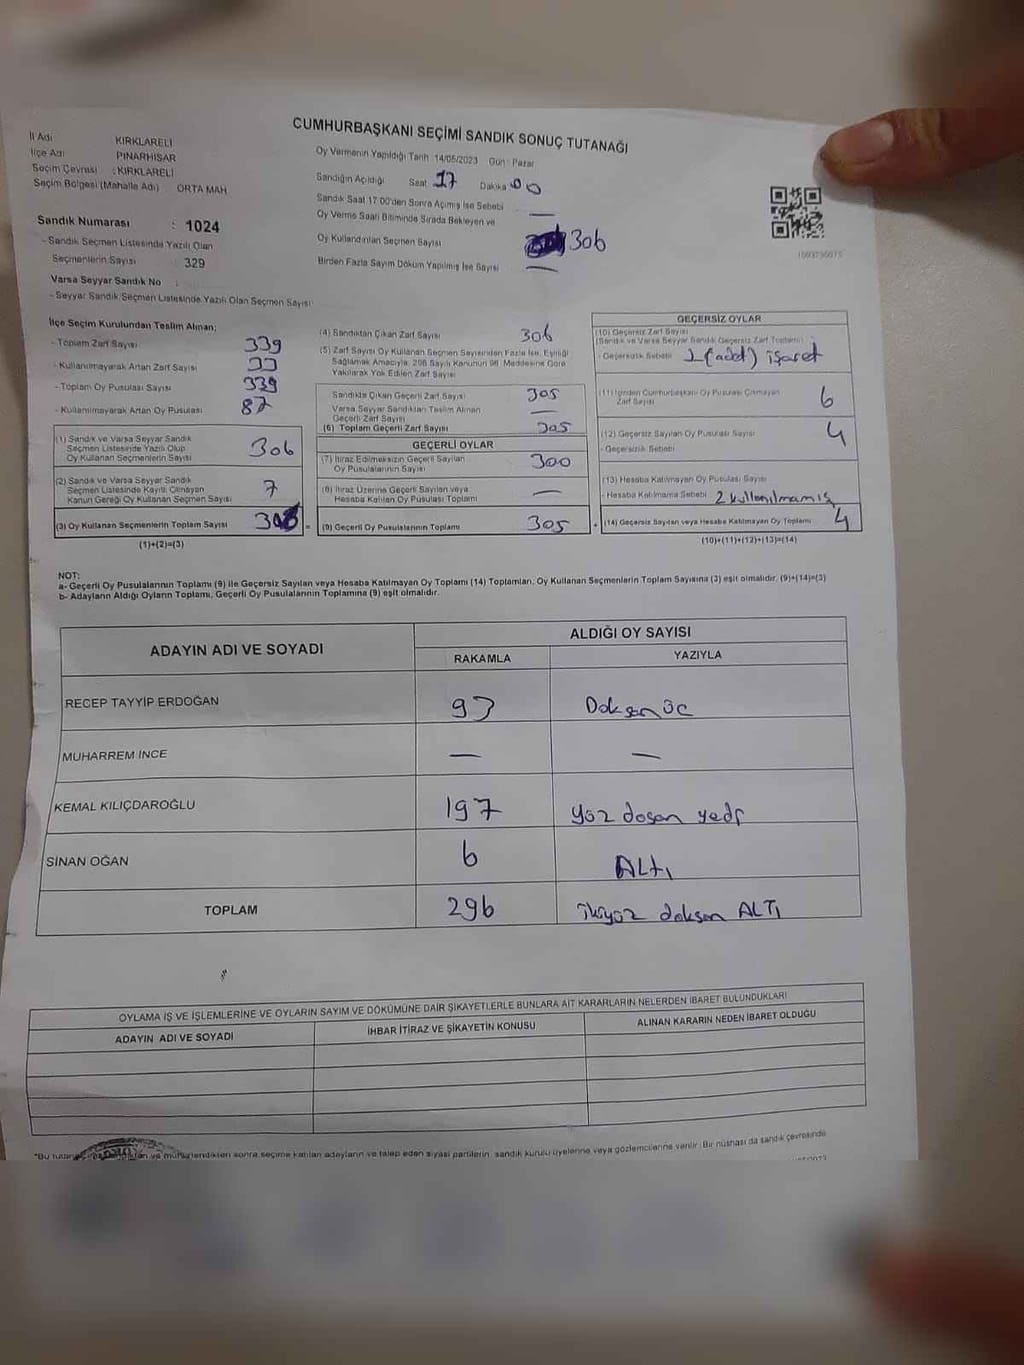 CUMHURBAŞKANI SEÇİMİ SANDIK SONUÇ TUTANAĞI
İl Adı KIRKLARELİ
İlçe Adı PINARHİSAR
Seçim Çevresi : KIRKLARELİ
Seçim Bölgesi (Mahalle Adı) ORTA MAH
Sandık Numarası : 1024
- Sandık Seçmen Listesinde Yazılı Olan
Seçmenlerin Sayısı : 329
Varsa Seyyar Sandık No :
- Seyyar Sandık Seçmen Listesinde Yazılı Olan Seçmen Sayısı:
Oy Vermenin Yapıldığı Tarih 14/05/2023 Gün : Pazar
Sandığın Açıldığı Saat 17 Dakika 00
Sandık Saat 17:00'den Sonra Açılmış İse Sebebi —
Oy Verme Saati Bitiminde Sırada Bekleyen ve
Oy Kullandırılan Seçmen Sayısı 306
Birden Fazla Sayım Döküm Yapılmış İse Sayısı —
İlçe Seçim Kurulundan Teslim Alınan;
- Toplam Zarf Sayısı 339
- Kullanılmayarak Artan Zarf Sayısı 33
- Toplam Oy Pusulası Sayısı 339
- Kullanılmayarak Artan Oy Pusulası 87
(1) Sandık ve Varsa Seyyar Sandık
Seçmen Listesinde Yazılı Olup
Oy Kullanan Seçmenlerin Sayısı 306
(2) Sandık ve Varsa Seyyar Sandık
Seçmen Listesinde Kayıtlı Olmayan
Kanun Gereği Oy Kullanan Seçmen Sayısı 7
(3) Oy Kullanan Seçmenlerin Toplam Sayısı
(1)+(2)=(3)
(4) Sandıktan Çıkan Zarf Sayısı 306
(5) Zarf Sayısı Oy Kullanan Seçmen Sayısından Fazla İse, Eşitliği
Sağlamak Amacıyla, 298 Sayılı Kanunun 98. Maddesine Göre
Yakılarak Yok Edilen Zarf Sayısı
Sandıkta Çıkan Geçerli Zarf Sayısı 305
Varsa Seyyar Sandıktan Teslim Alınan
Geçerli Zarf Sayısı —
(6) Toplam Geçerli Zarf Sayısı 305
GEÇERLİ OYLAR
(7) İtiraz Edilmeksizin Geçerli Sayılan
Oy Pusulalarının Sayısı 300
(8) İtiraz Üzerine Geçerli Sayılan veya
Hesaba Katılan Oy Pusulası Toplamı —
(9) Geçerli Oy Pusulalarının Toplamı 305
GEÇERSİZ OYLAR
(10) Geçersiz Zarf Sayısı
(Sandık ve Varsa Seyyar Sandık Geçersiz Zarf Toplamı)
- Geçersizlik Sebebi 1 (adet) işaret
(11) İçinden Cumhurbaşkanı Oy Pusulası Çıkmayan
Zarf Sayısı 6
(12) Geçersiz Sayılan Oy Pusulası Sayısı 4
- Geçersizlik Sebebi
(13) Hesaba Katılmayan Oy Pusulası Sayısı
- Hesaba Katılmama Sebebi 2 kullanılmamış
(14) Geçersiz Sayılan veya Hesaba Katılmayan Oy Toplamı 4
(10)+(11)+(12)+(13)=(14)
NOT:
a- Geçerli Oy Pusulalarının Toplamı (9) ile Geçersiz Sayılan veya Hesaba Katılmayan Oy Toplamı (14) Toplamları, Oy Kullanan Seçmenlerin Toplam Sayısına (3) eşit olmalıdır. (9)+(14)=(3)
b- Adayların Aldığı Oyların Toplamı, Geçerli Oy Pusulalarının Toplamına (9) eşit olmalıdır.
ADAYIN ADI VE SOYADI ALDIĞI OY SAYISI
RAKAMLA YAZIYLA
RECEP TAYYİP ERDOĞAN 93 Doksan üc
MUHARREM İNCE — —
KEMAL KILIÇDAROĞLU 197 yüz dosan yedi
SİNAN OĞAN 6 ALtı
TOPLAM 296 ikiyüz doksan ALTI
OYLAMA İŞ VE İŞLEMLERİNE VE OYLARIN SAYIM VE DÖKÜMÜNE DAİR ŞİKAYETLERLE BUNLARA AİT KARARLARIN NELERDEN İBARET BULUNDUKLARI
ADAYIN ADI VE SOYADI İHBAR İTİRAZ VE ŞİKAYETİN KONUSU ALINAN KARARIN NEDEN İBARET OLDUĞU
ve mühürlendikten sonra seçime katılan adayların ve talep eden siyasi partilerin, sandık kurulu üyelerine veya gözlemcilerine verilir. Bir nüshası da sandık çevresinde